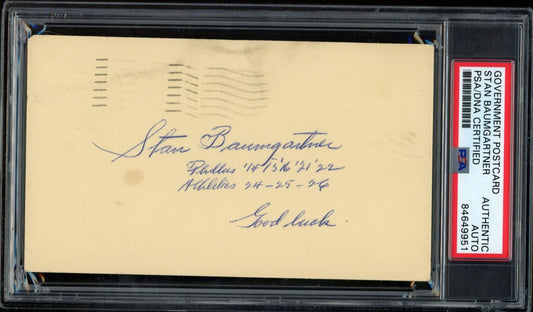 Stan Baumgartner
Phillies '14 '15 '16 '21 '22
Athletics 24-25-26
Good luck.
GOVERNMENT POSTCARD
STAN BAUMGARTNER
PSA/DNA CERTIFIED
PSA
AUTHENTIC
AUTO
84649951